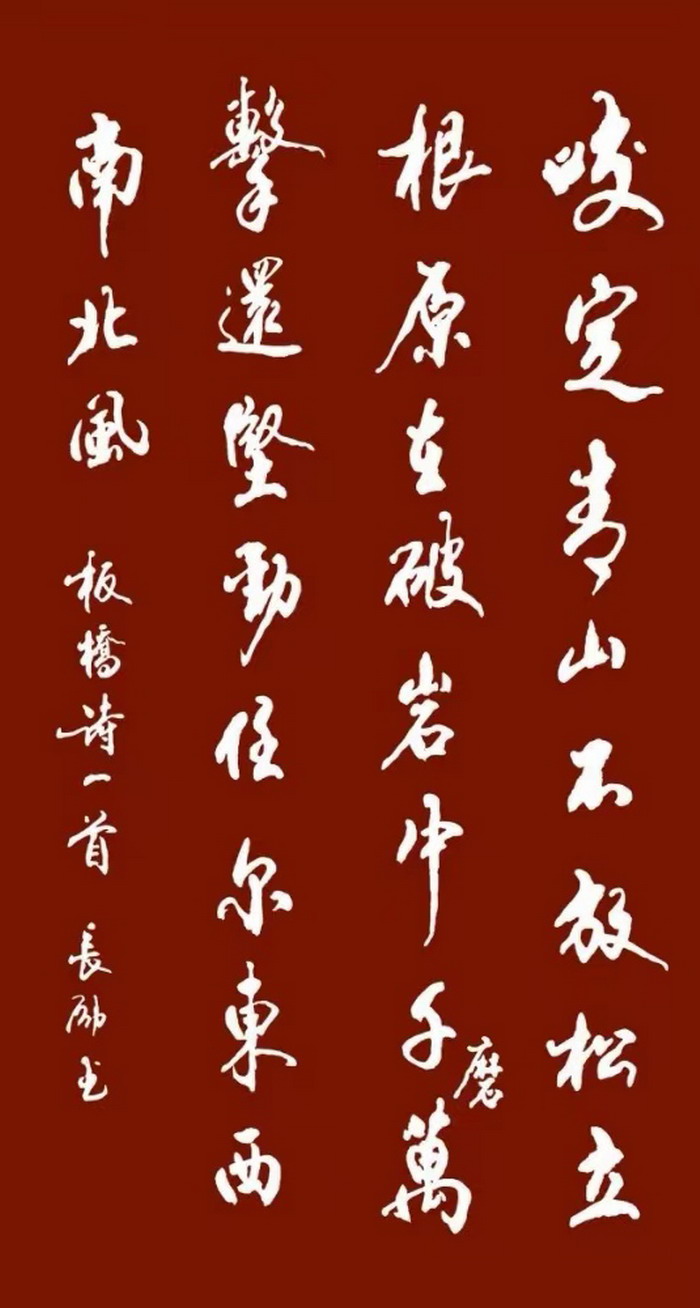 咬定青山不放松立
根原在破岩中千磨萬
擊還堅勁任尔東西
南北風 板橋诗一首 長励书